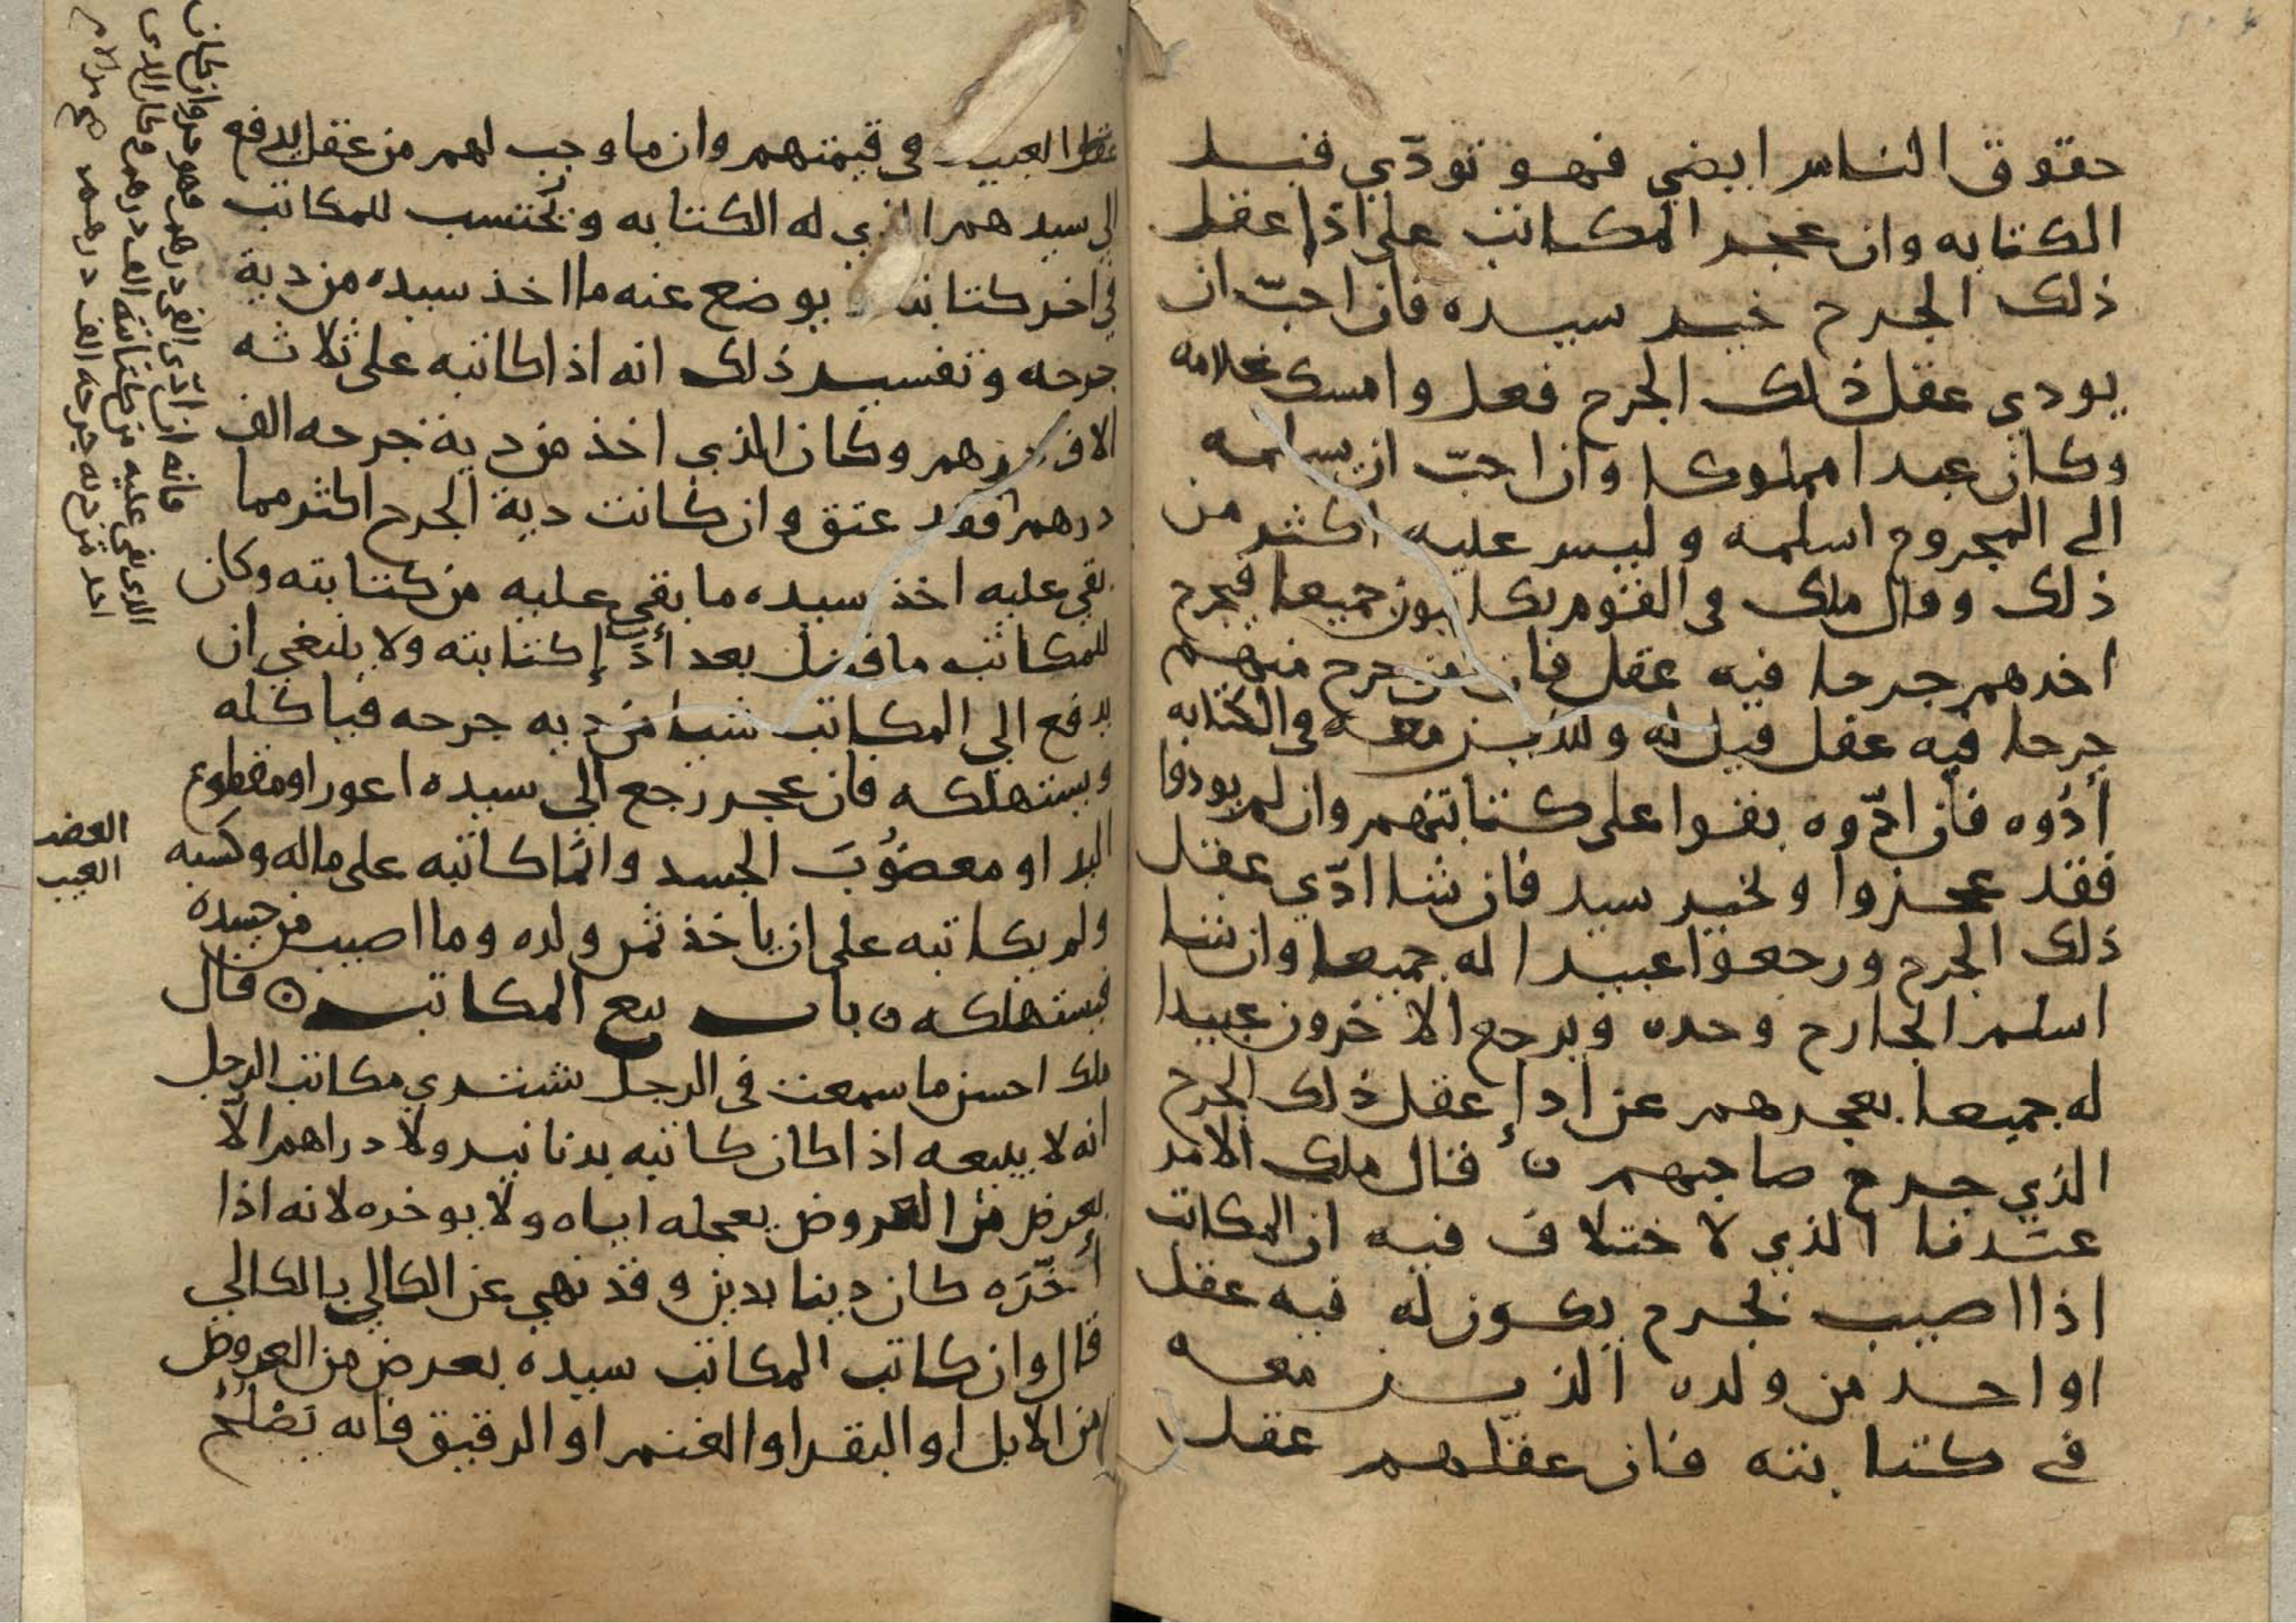 حقوق الناس ايضي فهو تودّي قبل
الكتابه وان عجز المكاتب على اذا عقل
ذلك الجرح خير سيده فان احبّ ان
يودي عقل ذلك الجرح فعل وامسك غلامه
وكان عبدا مملوكا وان احبّ ان يسلمه
الى المجروح اسلمه وليس عليه اكثر من
ذلك وقال ملك في القوم يكاتبون جميعا فيجرح
احدهم جرحا فيه عقل فان من جرح منهم
جرحا فيه عقل قيل له وللذين معه في الكتابه
أدُوه فان ادّوه بقوا على كتابتهم وان لم يودوا
فقد عجزوا ولخير سيد فان شا ادّي عقل
ذلك الجرح ورجعوا عبيدا له جميعا وان شا
اسلم الجارح وحده ويرجع الاخرون عبيدا
له جميعا بعجزهم عن اداإ عقل ذلك الجرح
الذي جرح صاحبهم ن قال ملك الامر
عندنا الذي لا ختلاف فيه ان المكاتب
اذا اصيب بجرح يكون له فيه عقل
او احد من ولده الذين معه
في كتابته فان عقلهم عقل
العبيد في قيمتهم وان ما وجب لهم من عقل يدفع
الي سيدهم الذي له الكتابه ويُحتسب للمكاتب
في اخر كتابته ويوضع عنه ما اخذ سيده من دية
جرحه وتفسير ذلك انه اذا كاتبه على ثلاثه
الاف درهم وكان الذي اخذ من دية جرحه الف
درهم فقد عتق وان كانت دية الجرح اكثر مما
بقي عليه اخذ سيده ما بقي عليه من كتابته وكان
للمكاتب ما فضل بعد أدَاإ كتابته ولا ينبغي ان
يدفع الي المكاتب شيا من ديه جرحه فياكله
ويستهلكه فان عجز رجع الي سيده اعور او مقطوع
اليد او معضُوبَ الجسد وانّما كاتبه على ماله وكسبه
ولم يكاتبه على ان ياخذ ثمن ولده وما اصيب من جسده
فيستهلكه ن باب بيع المكاتب ن قال
ملك احسن ما سمعت في الرجل يشتري مكاتب الرجل
انه لا يبيعه اذا كان كاتبه بدنانير ولا دراهم الا
بعرض من العروض يعجله اياه ولا يوخره لانه اذا
أخّرَه كان دينا بدين وقد نهي عن الكالي بالكالي
قال وان كاتب المكاتب سيده بعرض من العروض
من الابل او البقر او الغنم او الرقيق فانه يَصْلُحُ
فانه ان ادّى الفي درهم فهو حر وان كان
الذي بقي عليه من كتابته الف درهم وكان الذي
اخذ من دية جرحه الف درهم صح
العضب
العيب